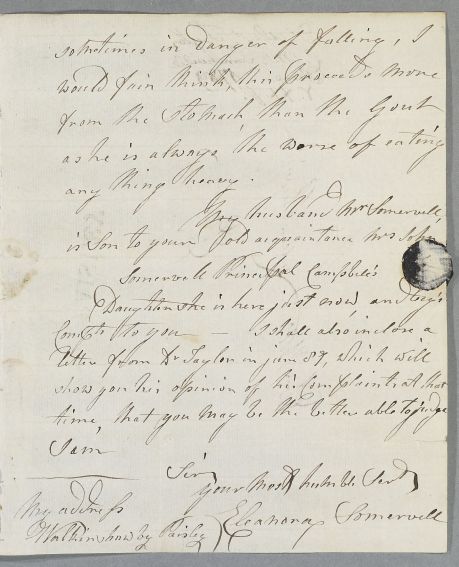 sometimes in danger of falling, I
would fain think, this proceeds more
from the Stomach, than the Gout
as he is always the worse of eating
any thing heavy.
My husband Mr Somervell,
is Son to your old acquaintance Mrs
Somervell Principal Campbel's
Daughter she is here just now, and begs
Compts to you — I shall also inclose a
letter from Dr Taylor in June 87, which will
show you his opinion of his Complaints at that
time, that you may be the better able to judge
I am
Sir
your most humble Sert
Eleanora Somervell
My address
Walkinshaw by Paisley